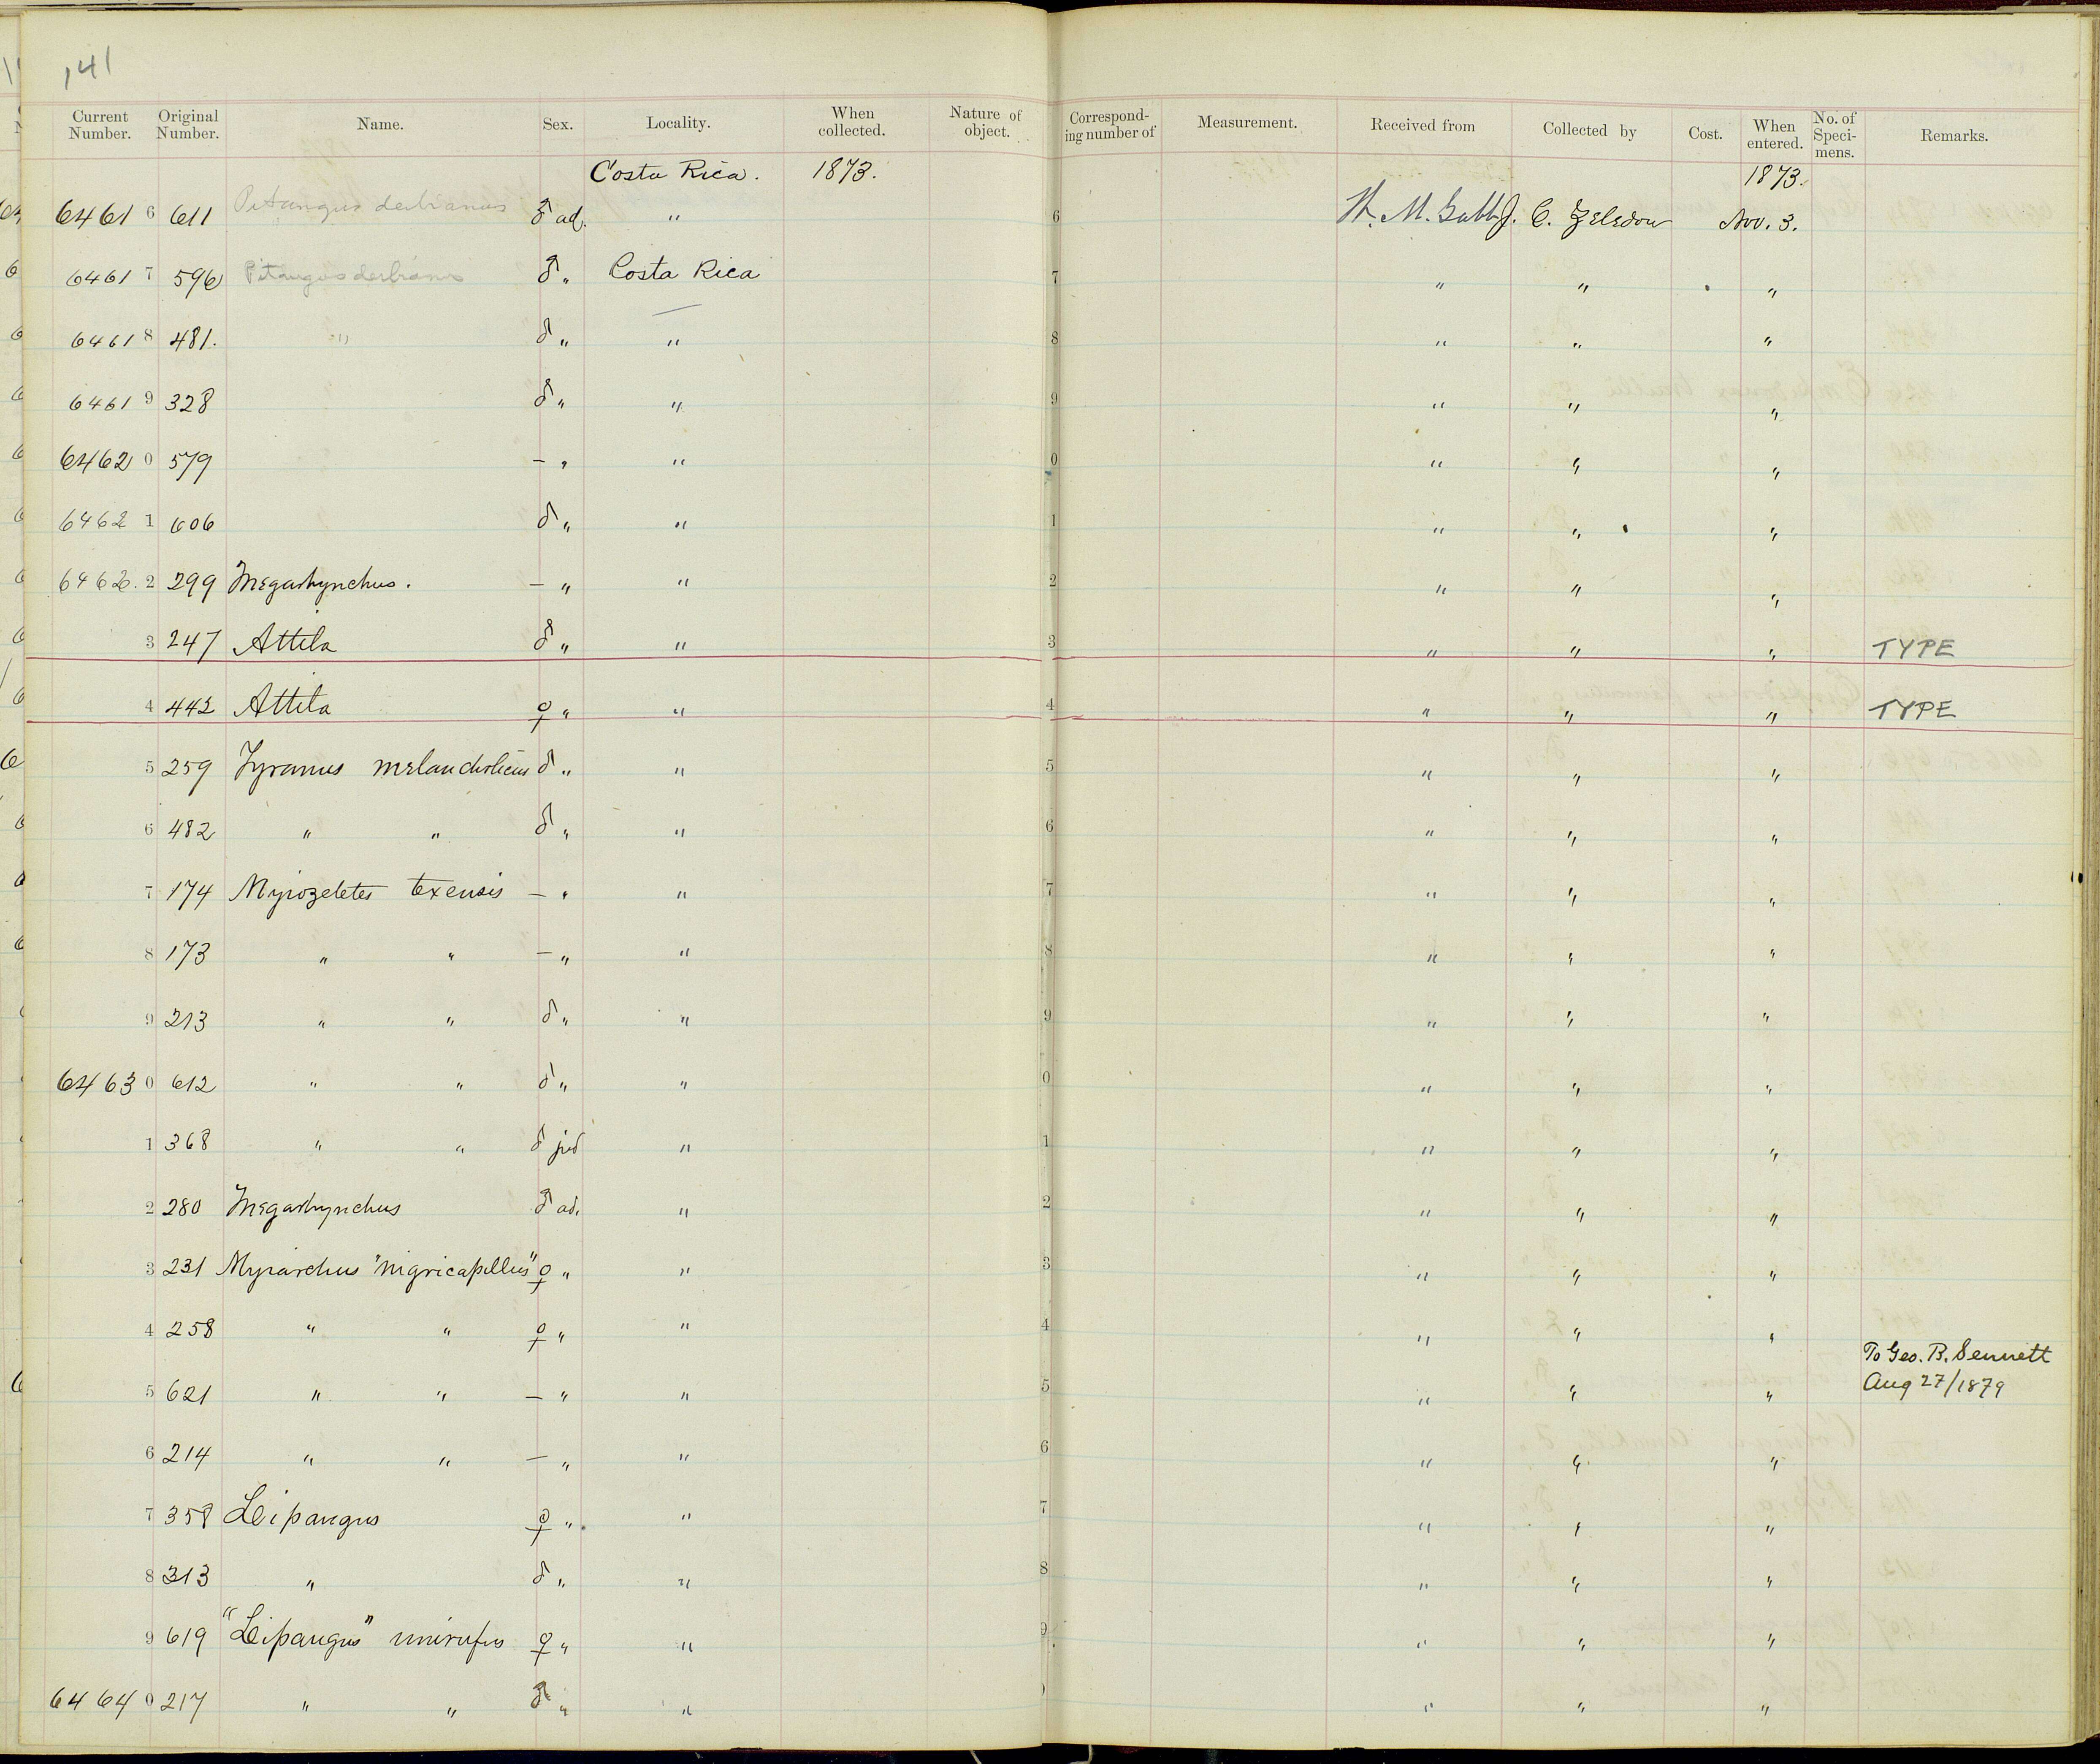 141
Current Number. Original Number. Name. Sex. Locality. When collected. Nature of object. Corresponding number of Measurement. Received from Collected by Cost. When entered. No. of Specimens. Remarks.
Costa Rica. 1873. 1873.
6461 6 611 Pitangus derbianus ♂ ad. " 6 W. M. Gabb J. C. Zeledon Nov. 3.
6461 7 596 Pitangus derbianus ♂ " Costa Rica 7 " " "
6461 8 481. " ♂ " " 8 " " "
6461 9 328 ♂ " " 9 " " "
6462 0 579 — " " 0 " " "
6462 1 606 ♂ " " 1 " " "
6462. 2 299 Megarhynchus. — " " 2 " " "
3 247 Attila ♂ " " 3 " " " TYPE
4 442 Attila ♀ " " 4 " " " TYPE
5 259 Tyrannus melancholicus ♂ " " 5 " " "
6 482 " " ♂ " " 6 " " "
7 174 Myiozetetes texensis — " " 7 " " "
8 173 " " — " " 8 " " "
9 213 " " ♂ " " 9 " " "
6463 0 612 " " ♂ " " 0 " " "
1 368 " " ♂ " 1 " " "
2 280 Megarhynchus ♂ ad. " 2 " " "
3 231 Myiarchus "nigricapillus" ♀ " " 3 " " "
4 258 " " ♀ " " 4 " " "
5 621 " " — " " 5 " " " To Geo. B. Sennett
Aug 27/1879
6 214 " " — " " 6 " " "
7 358 Leipaugus ♀ " " 7 " " "
8 313 " ♂ " " 8 " " "
9 619 "Leipaugus" unirufus ♀ " " 9 " " "
6464 0 217 " " ♂ " " " " "